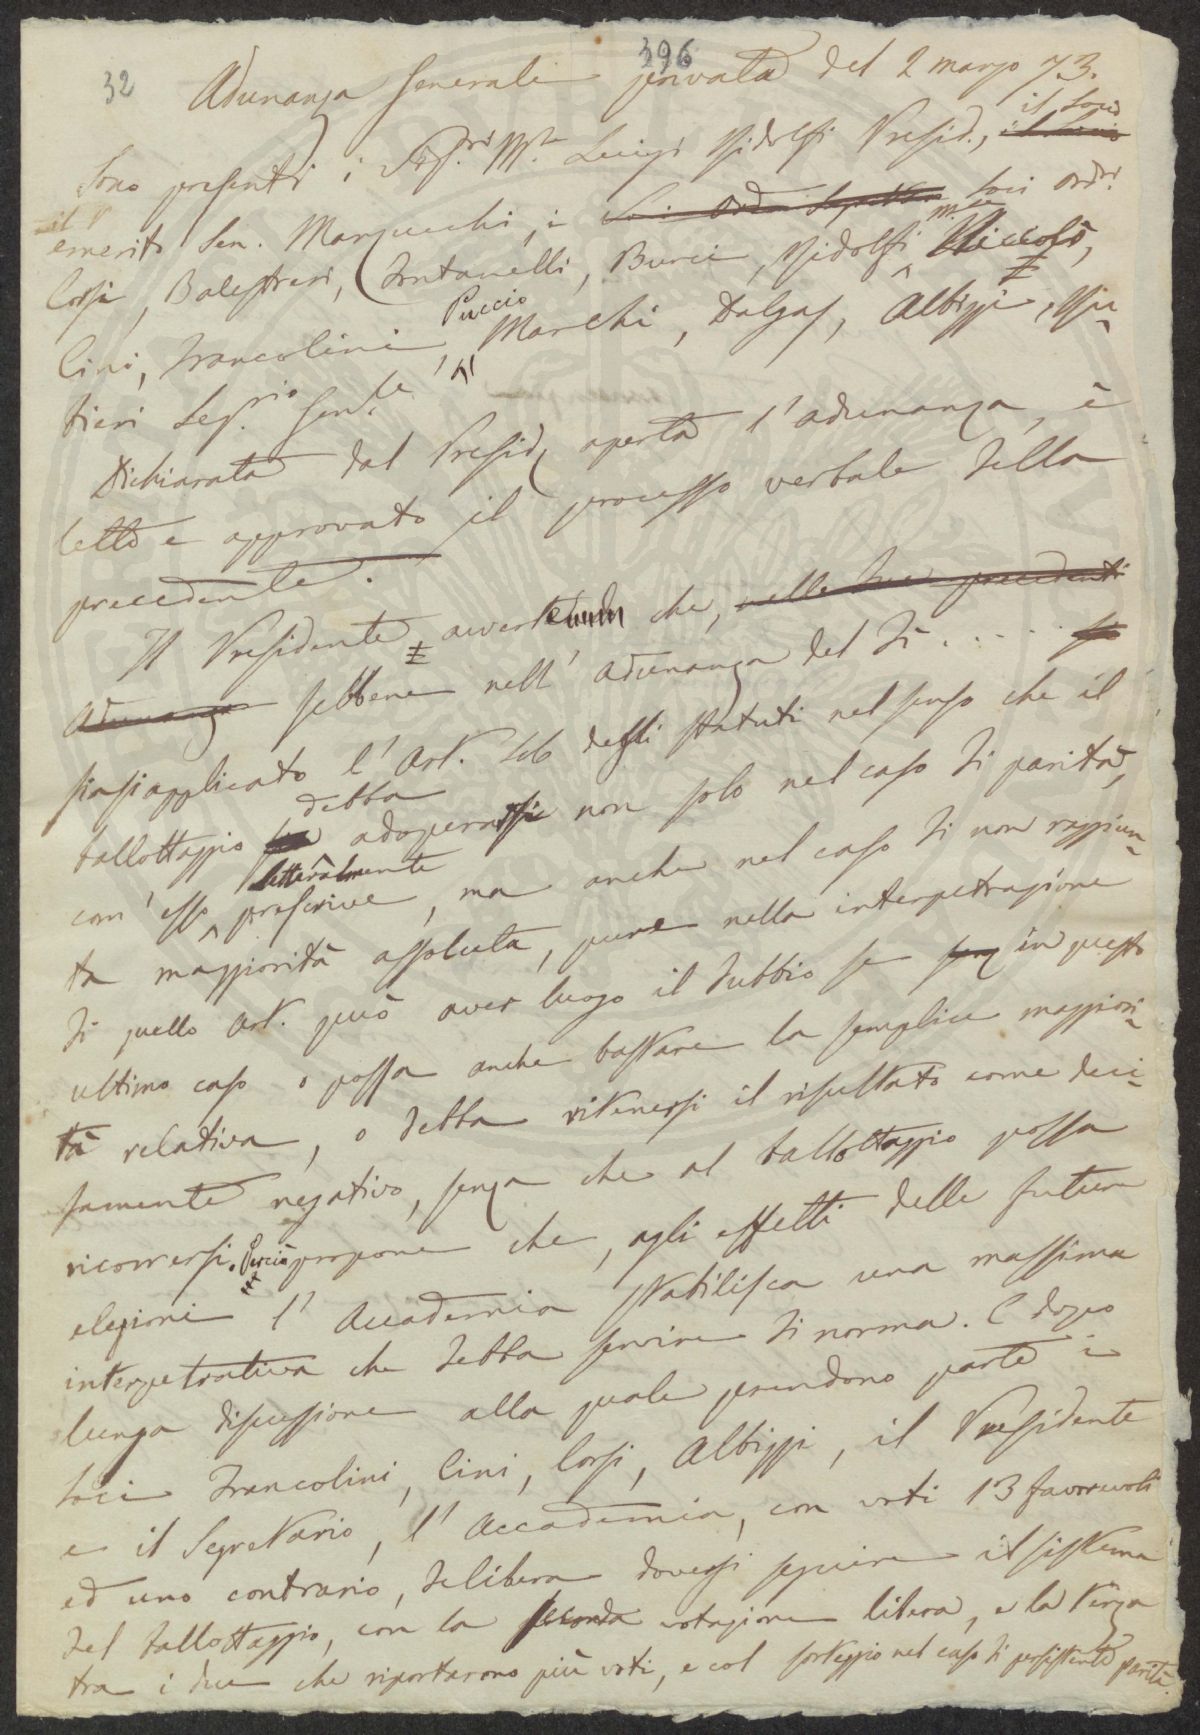 32
396
Adunanza Generale privata del 2 marzo 73.
Sono presenti i Sigg.ri M.se Luigi Ridolfi Presid., il Socio
il emerito Sen. Marzucchi, i Soci ord.ri
Corsi, Balestreri, Fontanelli, Burci, Ridolfi M.se Niccolò,
Cini, Francolini, Puccio Marchi, Dalgas, Albizzi, Gu-
tieri Seg.rio Gen.le
Dichiarata dal Presid. aperta l'adunanza, è
letto e approvato il processo verbale della
precedente.
Il Presidente, avvertendo che, nelle due precedenti
adunanze sebbene nell'adunanza del dì . . . .
siasi applicato l'Art. 46 degli Statuti nel senso che il
ballottaggio debba adoperarsi non solo nel caso di parità,
com'esso letteralmente prescrive, ma anche nel caso di non raggiun-
ta maggiorità assoluta, pure nella interpetrazione
di quello Art. può aver luogo il dubbio se in questo
ultimo caso o possa anche bastare la semplice maggiori-
tà relativa, o debba ritenersi il resultato come deci-
samente negativo, senza che al ballottaggio possa
ricorrersi. Perciò propone che, agli effetti delle future
elezioni l'Accademia stabilisca una massima
interpetrativa che debba servire di norma. E dopo
lunga discussione alla quale prendono parte i
Soci Francolini, Cini, Corsi, Albizzi, il Presidente
e il Segretario, l'Accademia, con voti 13 favorevoli
ed uno contrario, delibera doversi seguire il sistema
del ballottaggio, con la seconda votazione libera, e la terza
tra i due che riportarono più voti, e col sorteggio nel caso di persistente parità.